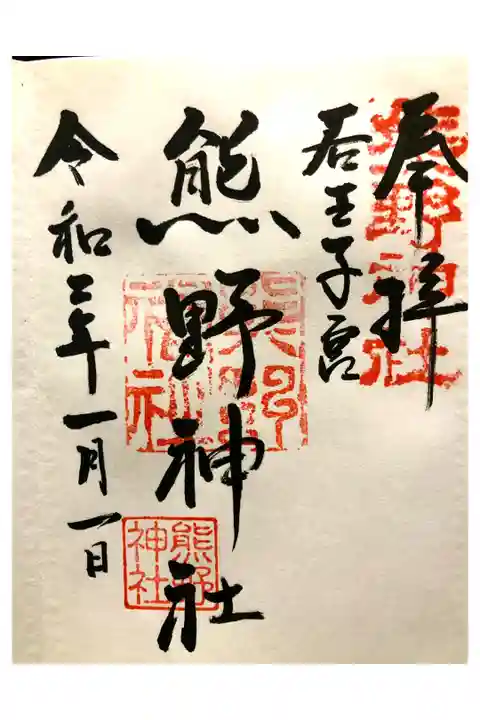 奉拝
熊野神社
若王子宮
熊野神社
熊野神社
熊野神社
令和二年一月一日